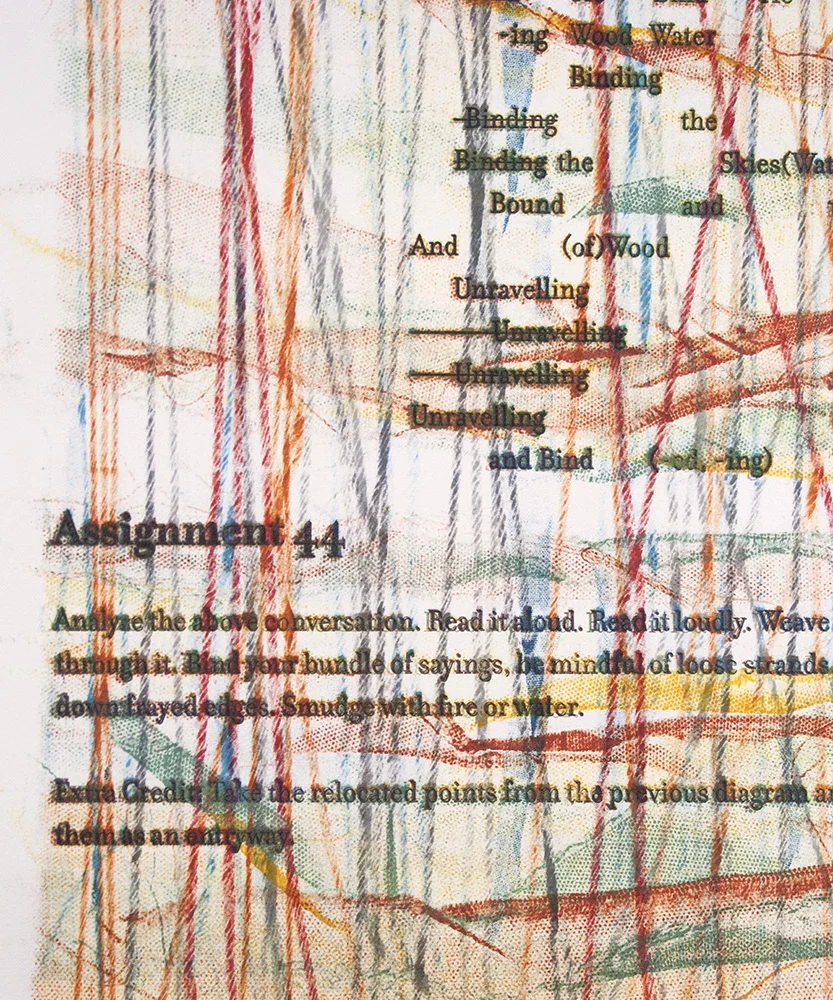 -ing Wood Water
Binding
Binding the
Binding the Skies(Wat
Bound and
And (of)Wood
Unravelling
Unravelling
Unravelling
Unravelling
and Bind (-ed, -ing)
Assignment 44
Analyze the above conversation. Read it aloud. Read it loudly. Weave
through it. Bind your bundle of sayings, be mindful of loose strands
down frayed edges. Smudge with fire or water.
Extra Credit: Take the relocated points from the previous diagram
them as an entryway.